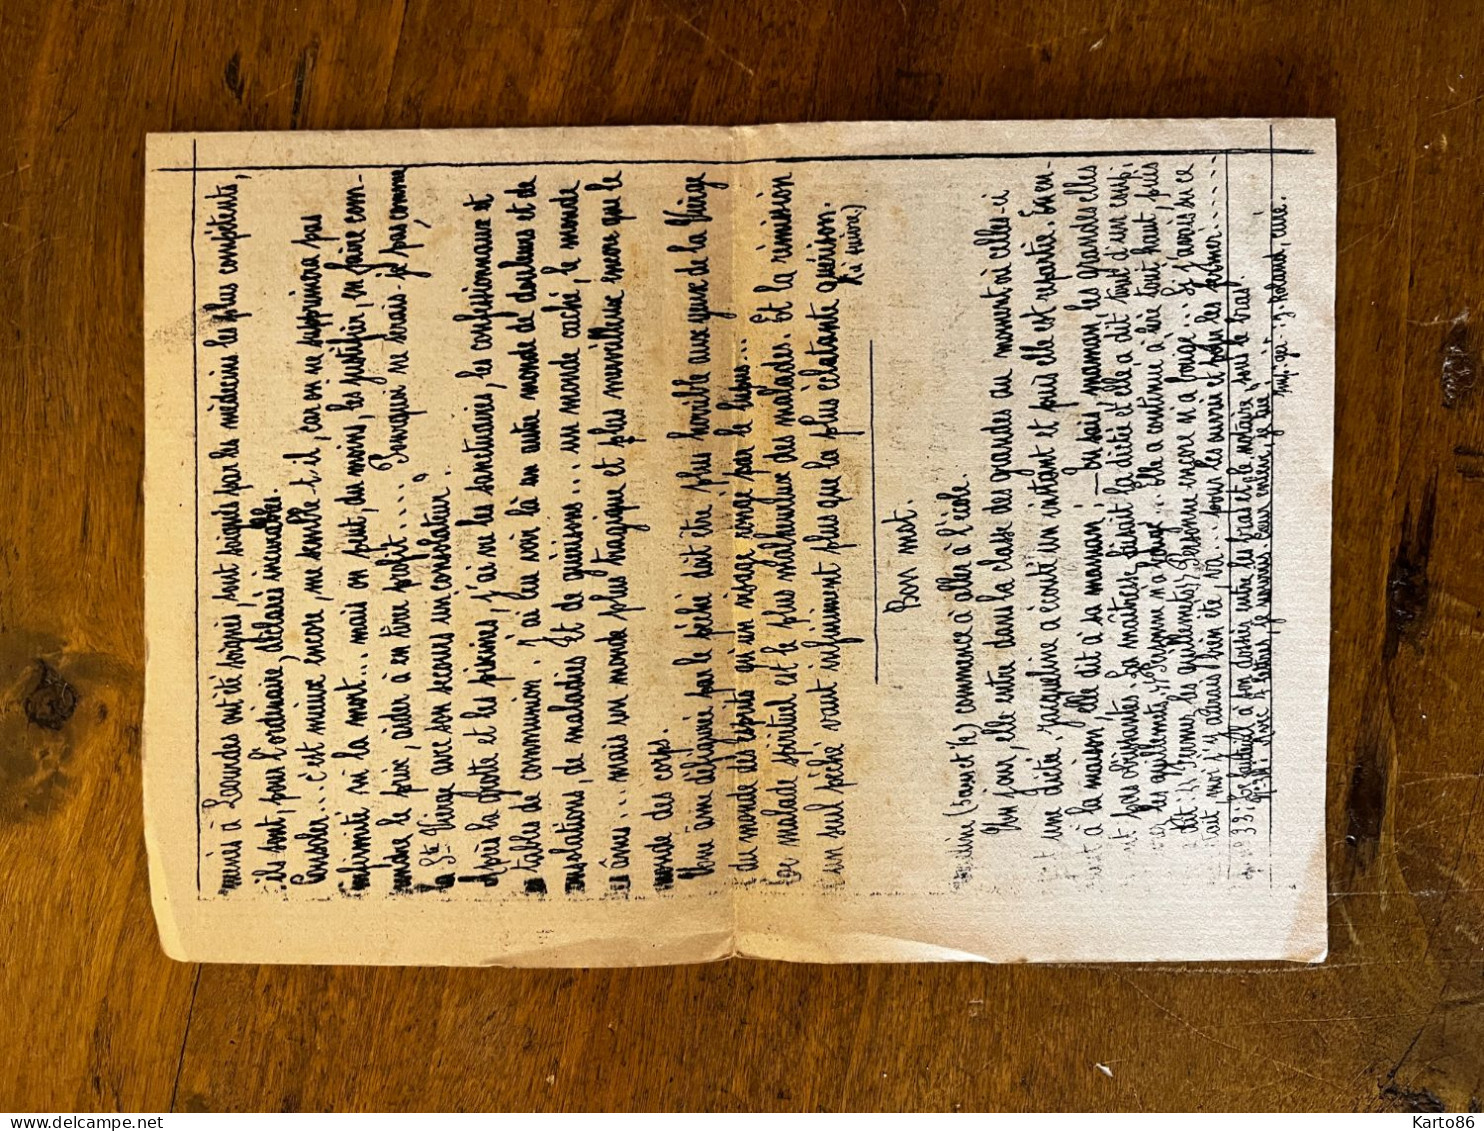 menés à Lourdes ont été soignés, sont soignés par les médecins les plus compétents,
ils sont, pour l'ordinaire, déclarés incurables.
Consoler... c'est mieux encore, me semble-t-il, car on ne supprimera pas
infirmité ni la mort... mais on peut, du moins, les justifier, en faire com-
prendre le prix, aider à en tirer profit.... Pourquoi ne serais-je pas comme
la Ste Vierge avec son secours un consolateur?
Après la grotte et les piscines, j'ai vu les sanctuaires, les confessionnaux et
tables de communion: j'ai cru voir là un autre monde de douleurs et de
consolations, de maladies et de guérisons... un monde caché, le monde
âmes... mais un monde plus tragique et plus merveilleux encore que le
monde des corps.
Une âme défigurée par le péché doit être plus horrible aux yeux de la Vierge
du monde des esprits qu'un visage rongé par le lupus...
Le malade spirituel est le plus malheureux des malades. Et la rémission
un seul péché vaut infiniment plus que la plus éclatante guérison.
(à suivre)
Bon mot.
(5 ans et ½) commence à aller à l'école.
Un jour, elle entre dans la classe des grandes au moment où celles-ci
une dictée. Jacqueline a écouté un instant et puis elle est repartie. En en-
à la maison, elle dit à sa maman: — Tu sais, maman, les grandes elles
pas obéissantes. La maîtresse faisait la dictée et elle a dit tout d'un coup:
les guillemets." Personne n'a bougé... Elle a continué à lire tout haut, puis
dit: "Fermez les guillemets." Personne encore n'a bougé... Si j'avais su ce
moi j'y aurais bien été va... pour les ouvrir et pour les fermer......
no 33: Le facteur a son dossier entre les bras et le notaire "sous le bras".
avec 4 lettres, je souris
Imp. gér: J. Roland, curé.
Karto86